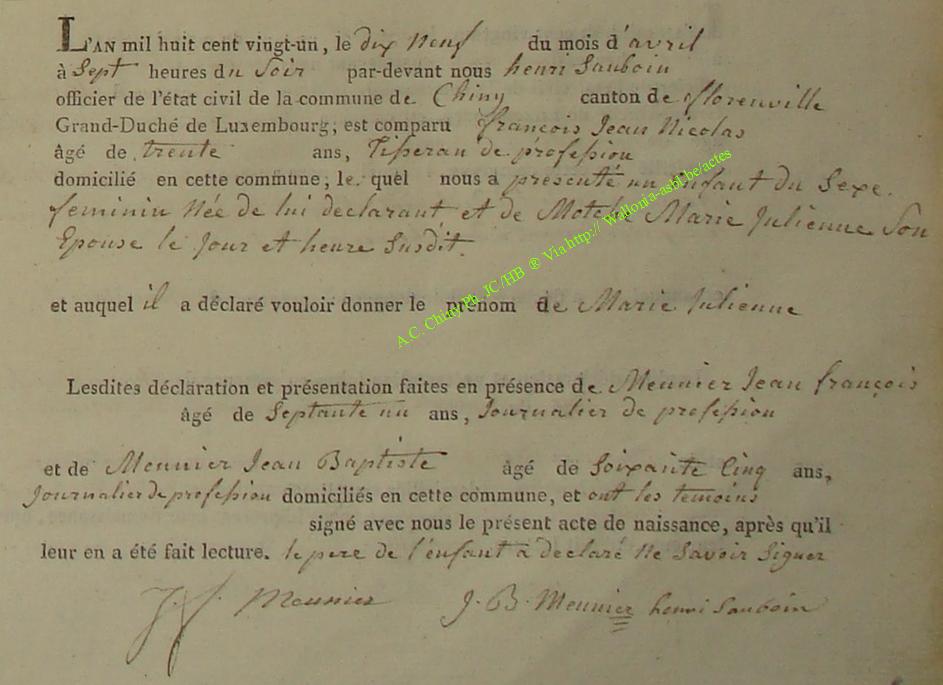 L'AN mil huit cent vingt-un, le dix neuf du mois d'avril
à Sept heures du Soir par-devant nous henri Sauboin
officier de l'état civil de la commune de Chiny canton de florenville
Grand-Duché de Luxembourg; est comparu françois Jean Nicolas
âgé de trente ans, Tisseran de profession
domicilié en cette commune, le quel nous a présenté un Enfant du Sexe
feminin Née de lui declarant et de Motch Marie Julienne Son
Epouse le Jour et heure Susdit.
et auquel il a déclaré vouloir donner le prénom de Marie Julienne
A.C. Chiny Ph. JC/HB ® Via http:// Wallonia-asbl.be/actes
Lesdites déclaration et présentation faites en présence de Meunier Jean françois
âgé de Septante un ans, Journalier de profession
et de Meunier Jean Baptiste âgé de Soixante Cinq ans,
Journalier de profession domiciliés en cette commune, et ont les temoins
signé avec nous le présent acte de naissance, après qu'il
leur en a été fait lecture. le pere de l'enfant à declaré ne Savoir Signer
J. f. Meunier J. B. Meunier henri Sauboin